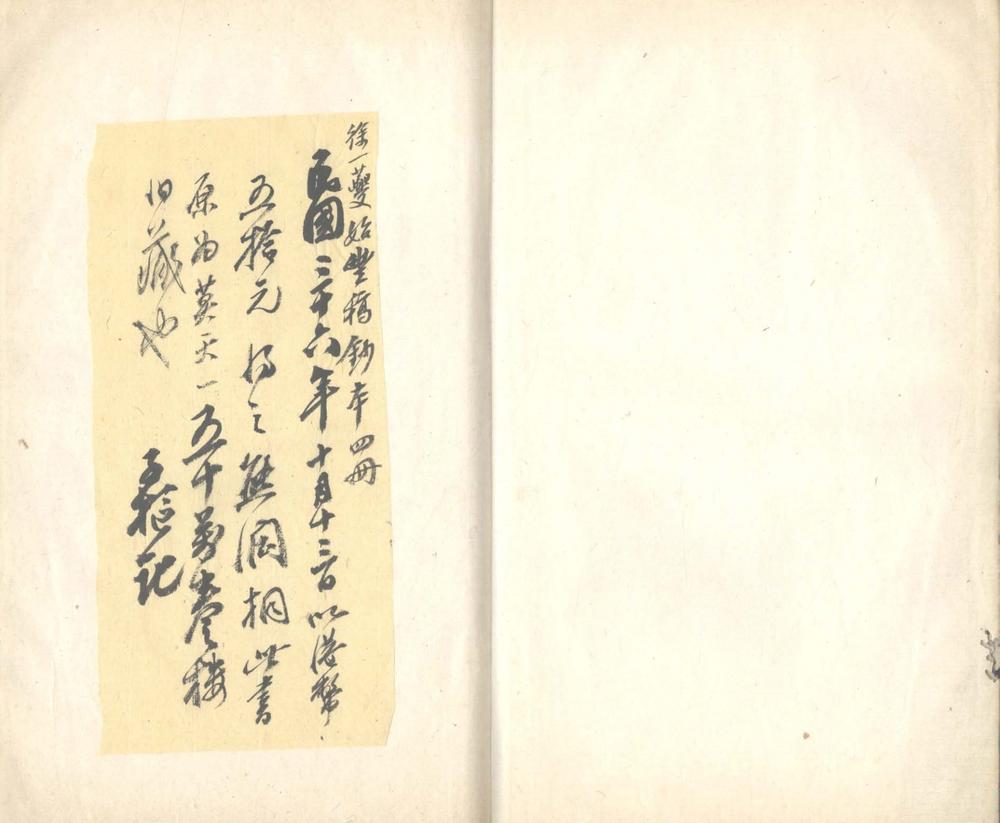 徐一夔始豐稿鈔本四冊
民國三十六年十月十三日以港幣
五拾元得之熊閏桐此書
原為莫天一五十萬卷樓
旧藏也
子記